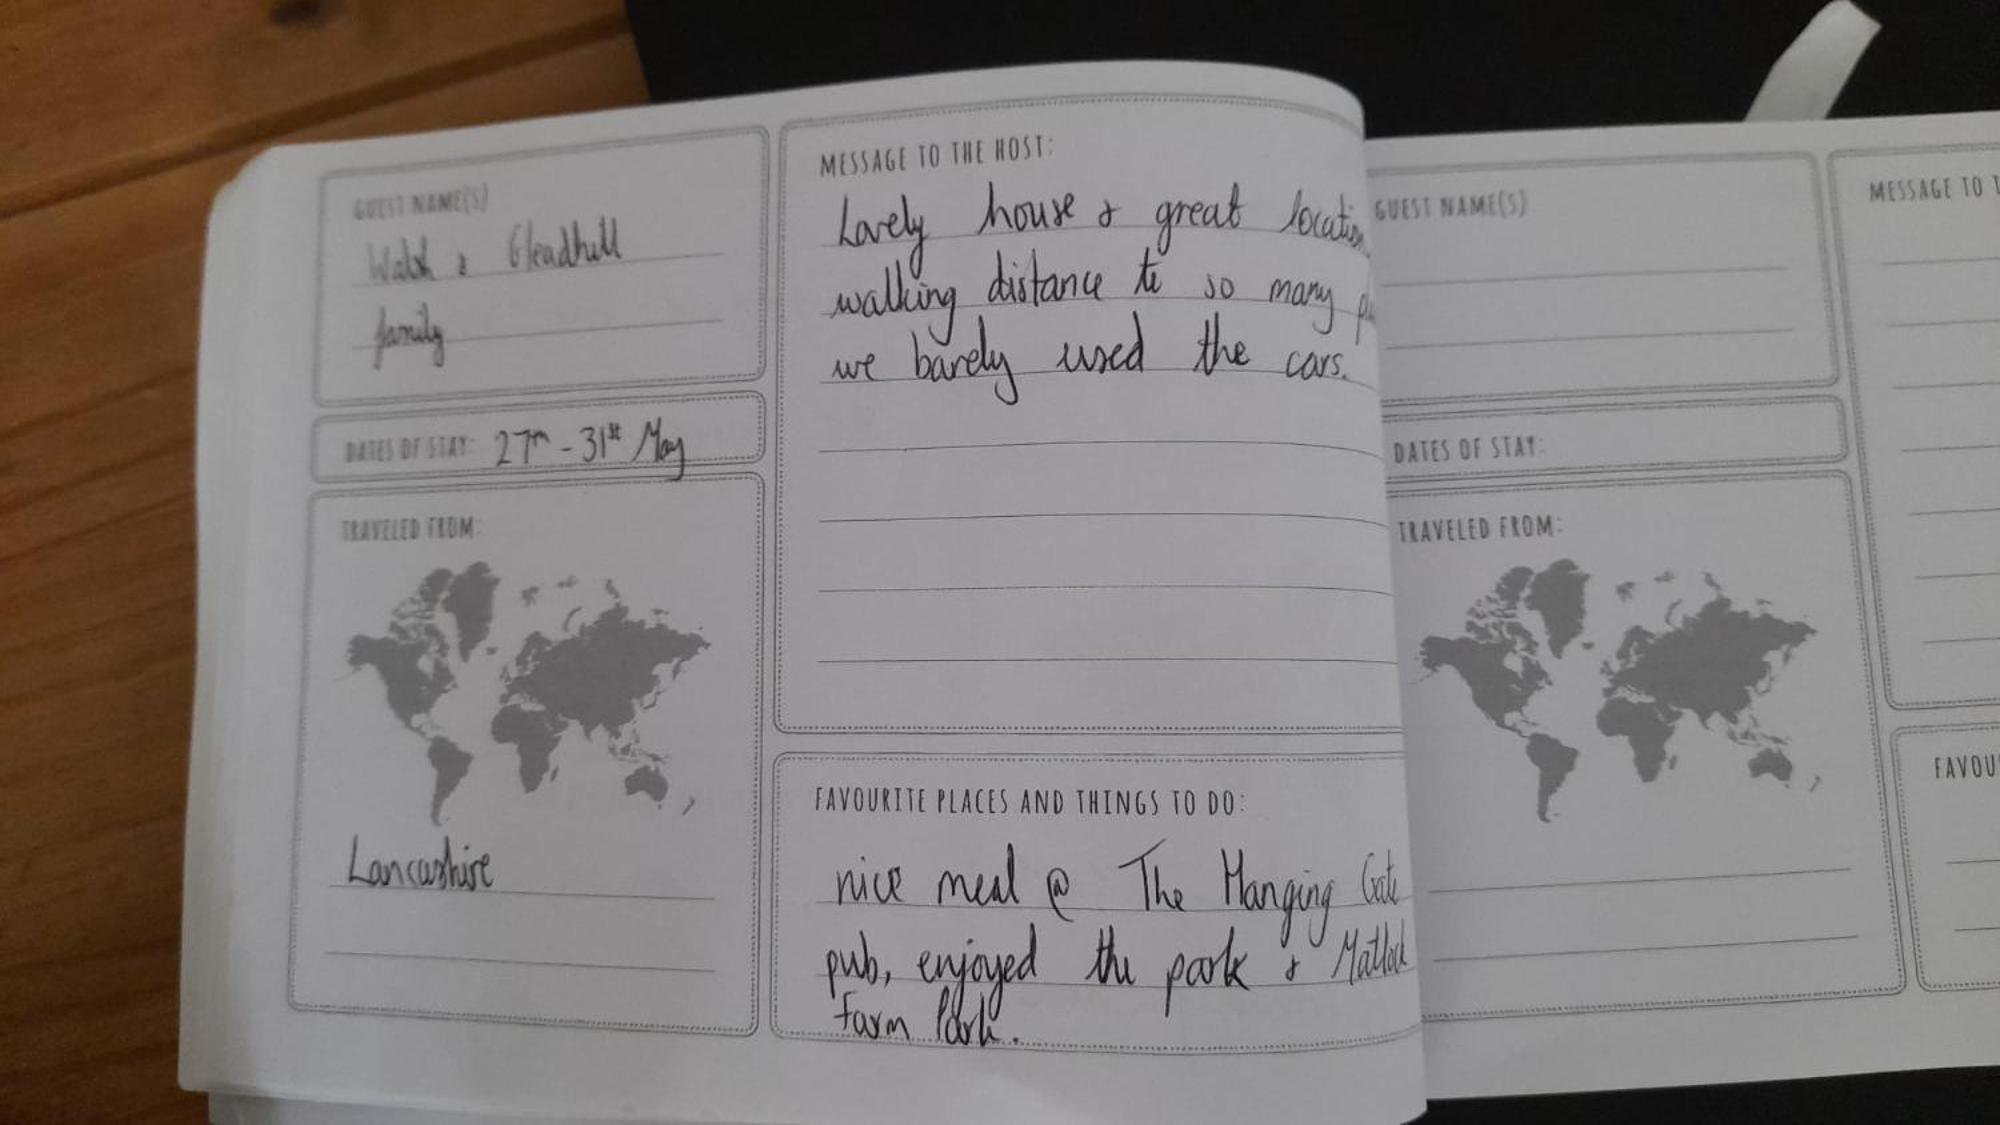 GUEST NAME(S)
Walsh & Gleadhill
family
DATES OF STAY: 27th - 31st May
TRAVELED FROM:
Lancashire
MESSAGE TO THE HOST:
Lovely house & great locatio
walking distance to so many
we barely used the cars.
FAVOURITE PLACES AND THINGS TO DO:
nice meal @ The Hanging Gate
pub, enjoyed the park & Matlock
Farm Park.
GUEST NAME(S)
DATES OF STAY:
TRAVELED FROM:
MESSAGE TO T
FAVOU